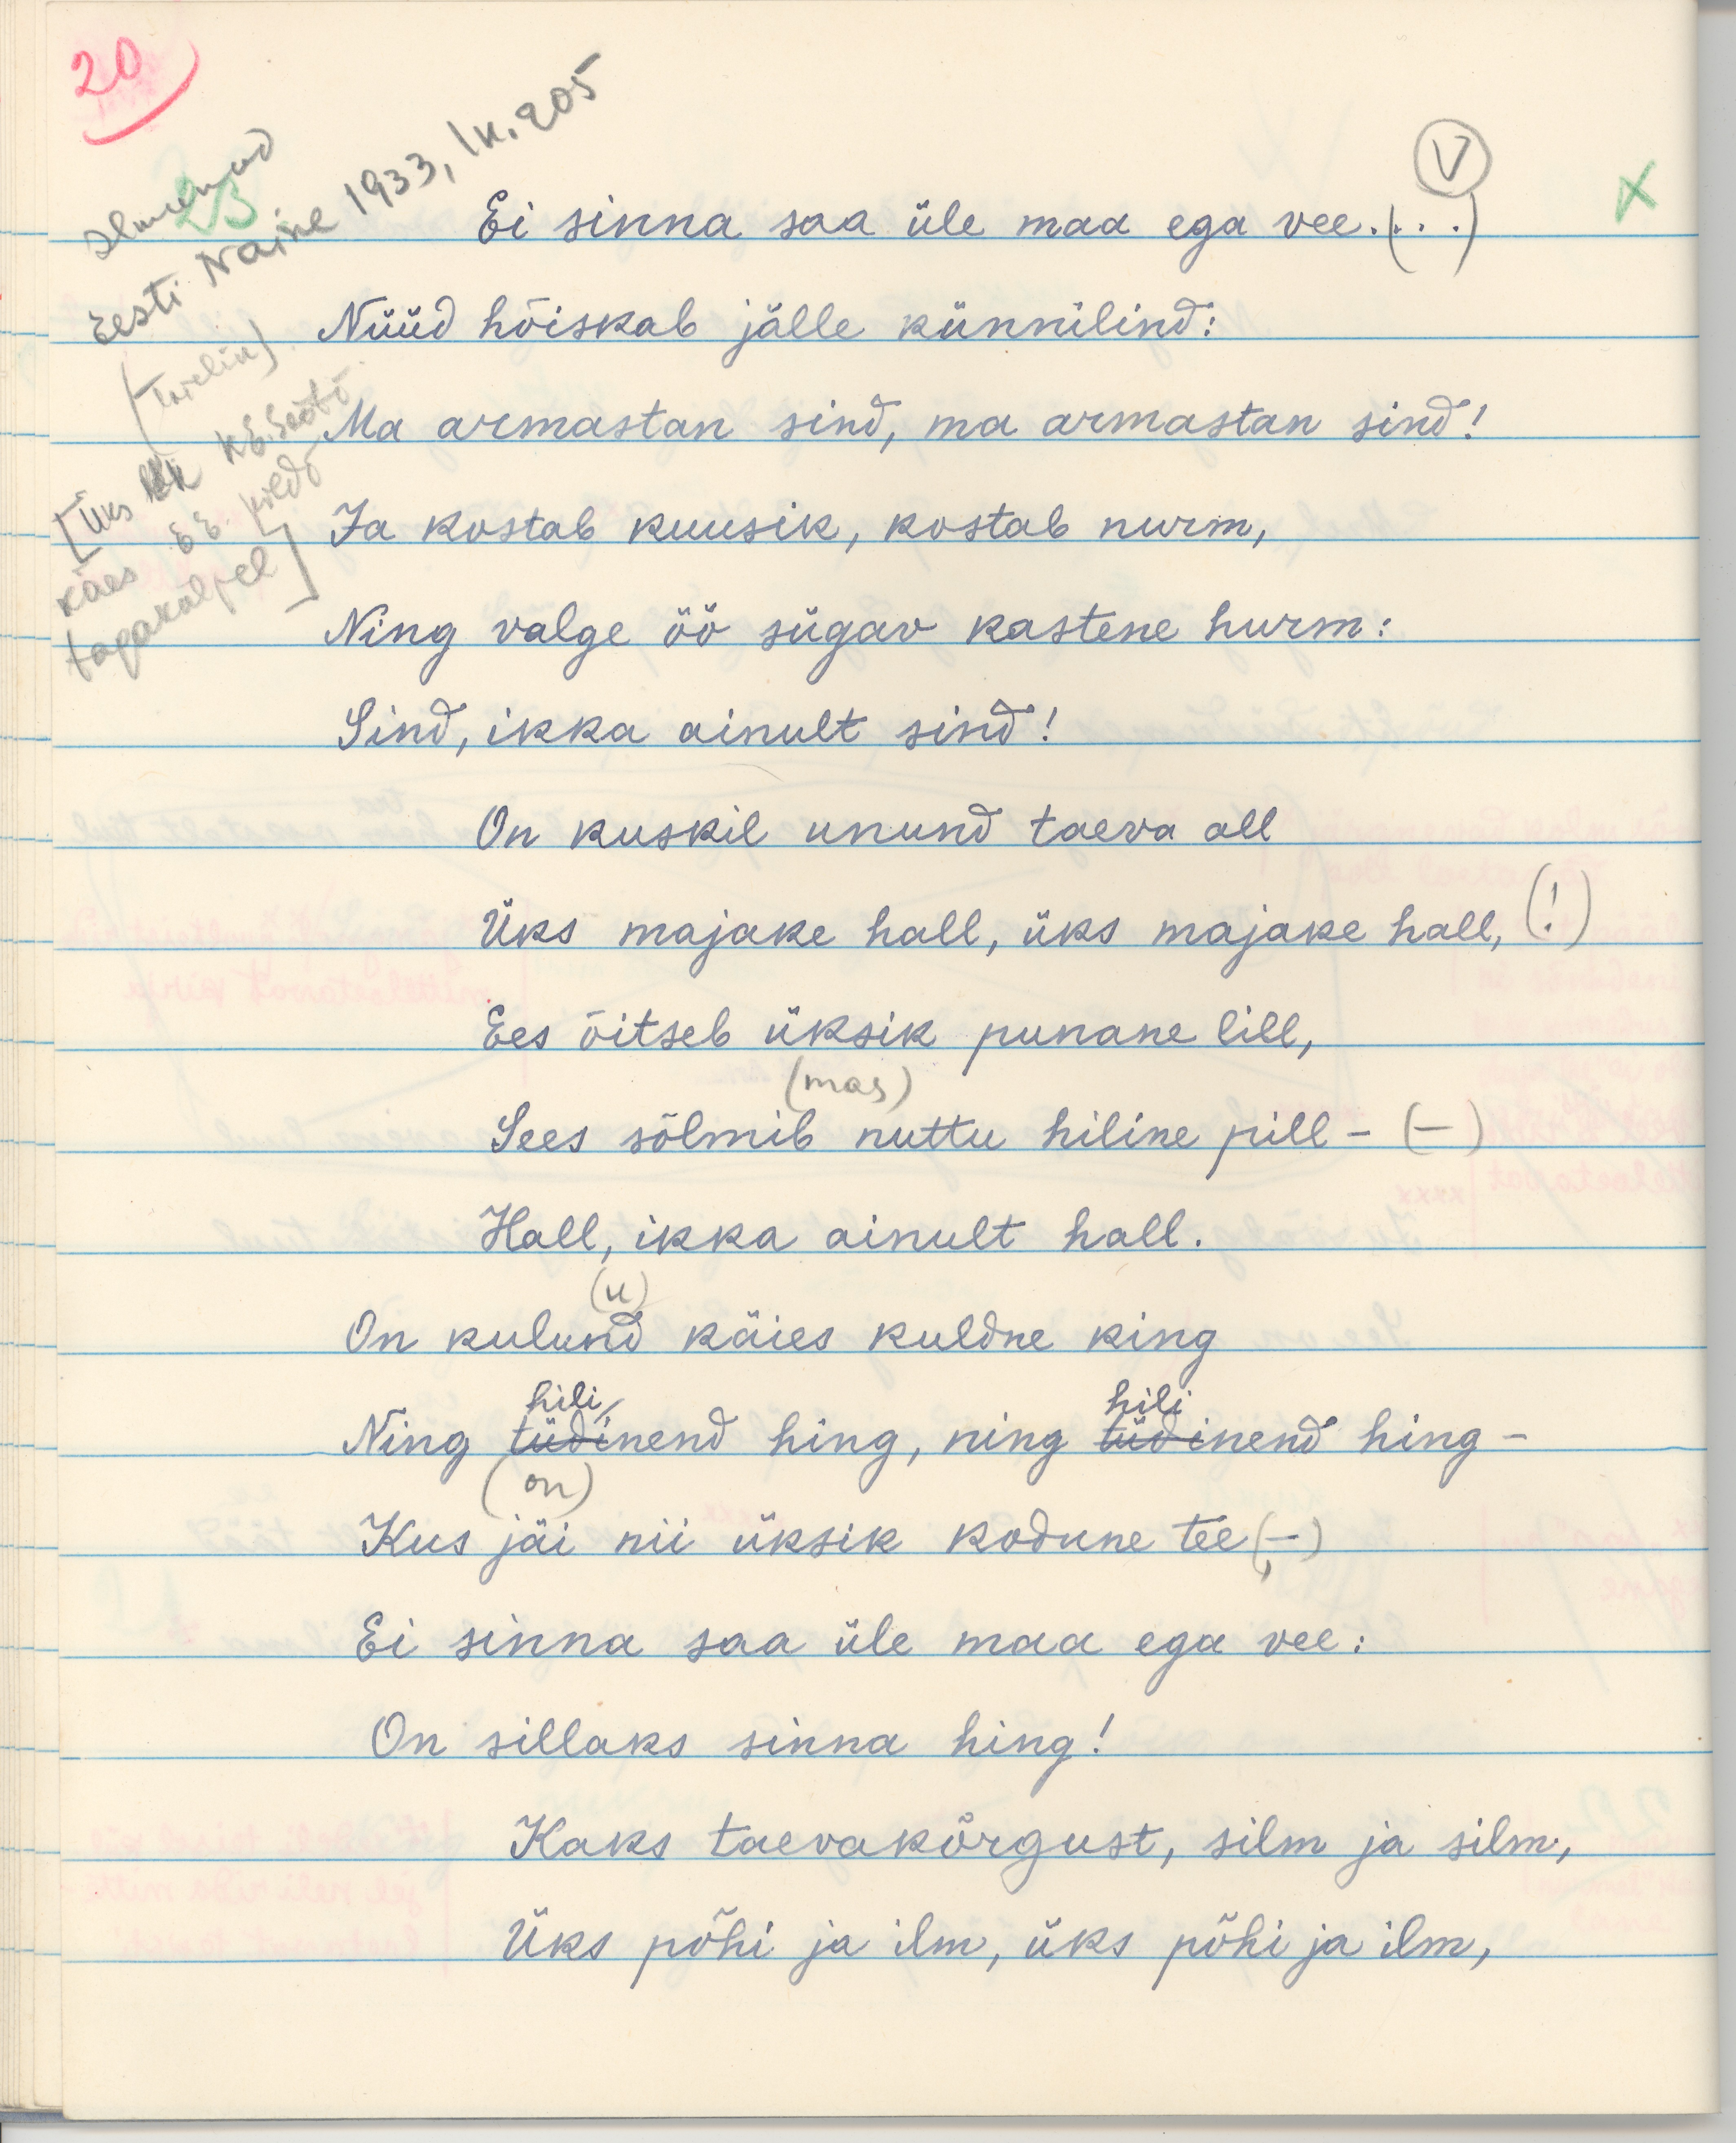 20
23
Ilmunud
Eesti Naine 1933, lk. 205
[Üks
käes
tagaküljel]
V
X
Ei sinna saa üle maa ega vee.(...)
Nüüd hõiskab jälle künnilind:
Ma armastan sind, ma armastan sind!
Ja kostab kuusik, kostab nurm,
Ning valge öö sügav kastene hurm:
Sind, ikka ainult sind!
On kuskil unund taeva all
Üks majake hall, üks majake hall, (!)
Ees õitseb üksik punane lill,
(mas)
Sees sõlmib nuttu hiline pill – (–)
Hall, ikka ainult hall.
(u)
On kulund käies kuldne king
hili hili
Ning tüdinend hing, ning tüdinend hing –
(on)
Kus jäi nii üksik kodune tee, (–)
Ei sinna saa üle maa ega vee:
On sillaks sinna hing!
Kaks taevakõrgust, silm ja silm,
Üks põhi ja ilm, üks põhi ja ilm,